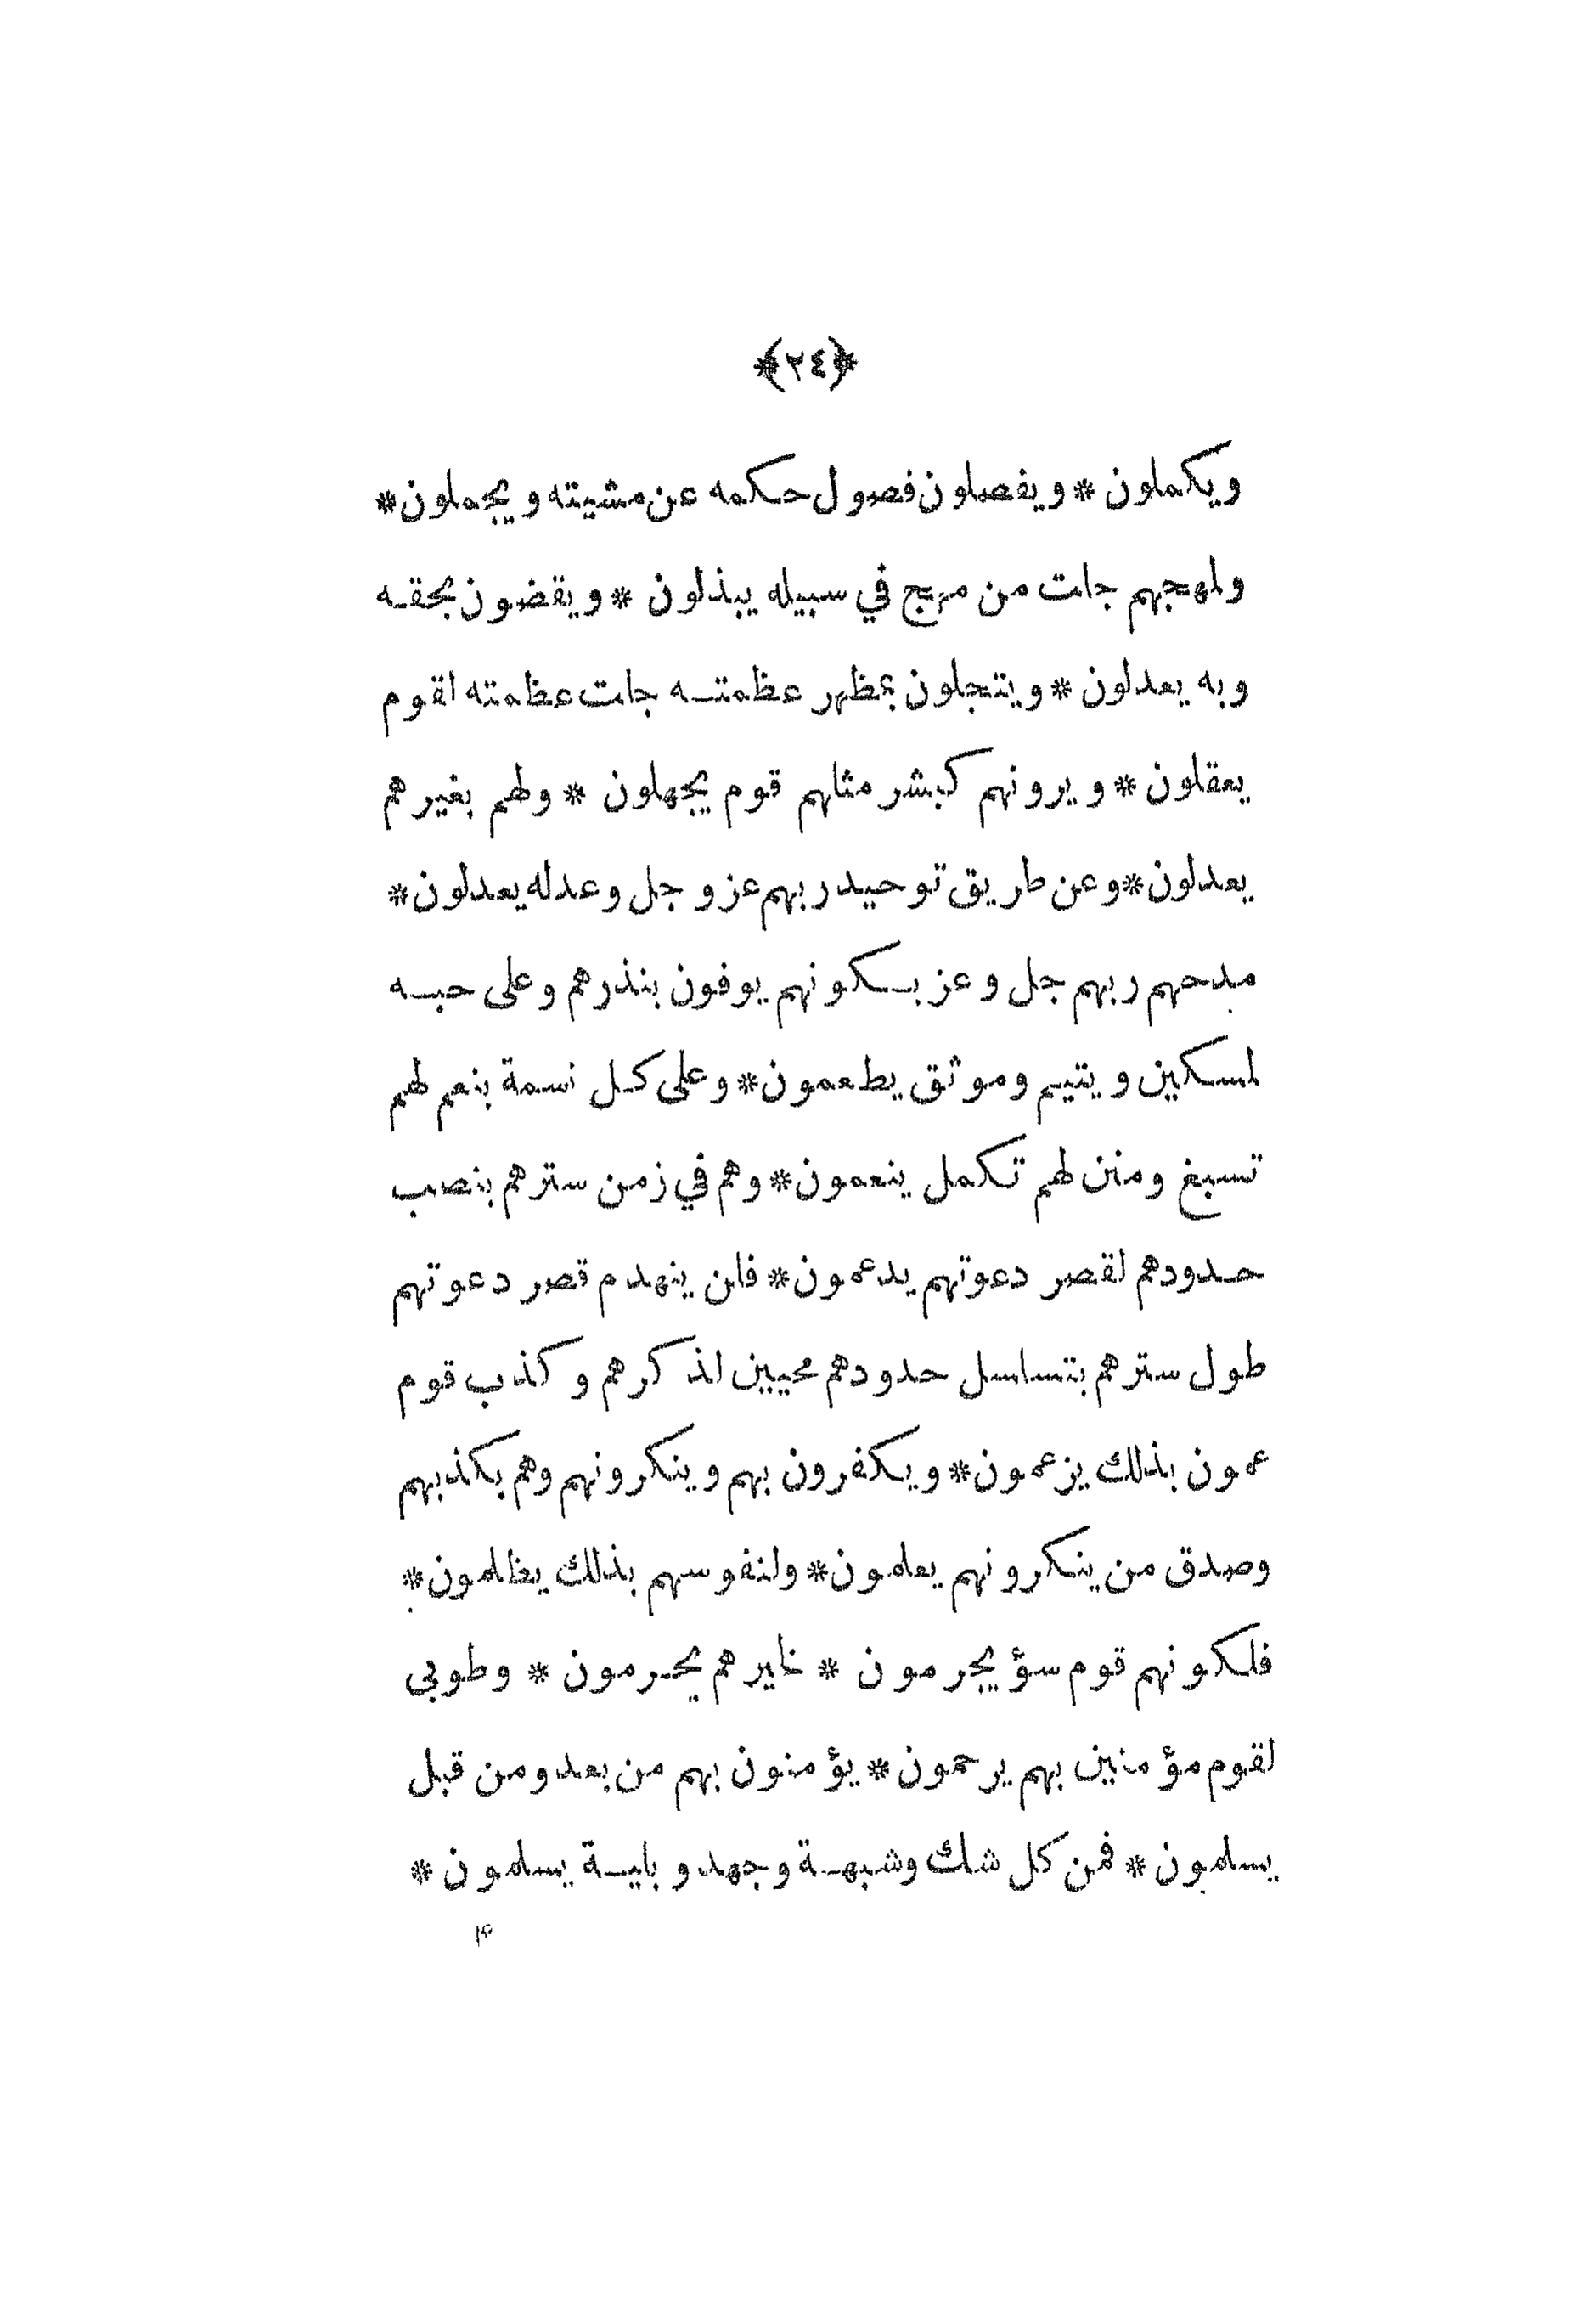 ﴿٢٤﴾
ويكملون * ويفصلون فصول حكمه عن مشيته ويجملون *
ولمهجهم جلت من مهج في سبيله يبذلون * ويقضون بحقه
وبه يعدلون * ويتجلون بمظهر عظمته جلت عظمته لقوم
يعقلون * ويرونهم كبشر مثلهم قوم يجهلون * ولهم بغيرهم
يعدلون * وعن طريق توحيد ربهم عز وجل وعدله يعدلون *
مدحهم ربهم جل وعز بكونهم يوفون بنذرهم وعلى حبه
لمسكين ويتيم وموثق يطعمون * وعلى كل نسمة بنعم لهم
تسبغ ومنن لهم تكمل ينعمون * وهم في زمن سترهم بنصب
حدودهم لقصر دعوتهم يدعمون * فلن ينهدم قصر دعوتهم
طول سترهم بتسلسل حدودهم محيين لذكرهم وكذب قوم
عمون بذلك يزعمون * ويكفرون بهم وينكرونهم وهم بكذبهم
وصدق من ينكرونهم يعلمون * ولنفوسهم بذلك يظلمون *
فلكونهم قوم سؤ يجرمون * خايرهم يحرمون * وطوبى
لقوم مؤمنين بهم يرحمون * يؤمنون بهم من بعد ومن قبل
يسلمون * فمن كل شك وشبهة وجهد وبلية يسلمون *